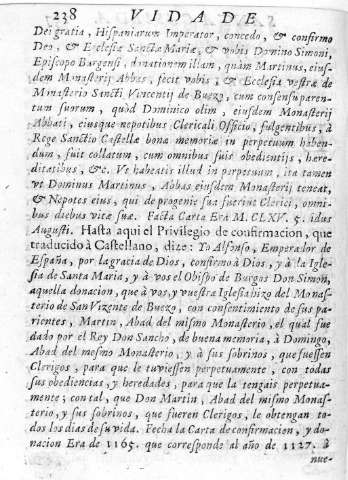 238 VIDA DE
Dei gratia, Hispaniarum Imperator, concedo, & confirmo
Deo, & Ecclesiæ Sanctæ Mariæ, & vobis Domino Simoni,
Episcopo Burgensi, donationem illam, quàm Martinus, eius-
dem Monasterij Abbas, fecit vobis, & Ecclesiæ vestræ de
Ministerio Sancti Vincentij de Buezo, cum consensu paren-
tum suorum, quòd Dominico olim, eiusdem Monasterij
Abbati, eiusque nepotibus Clericali Officio, fulgentibus, à
Rege Sanctio Castellæ bonæ memoriæ in perpetuum haben-
dum, fuit collatum, cum omnibus suis obedientijs, here-
ditatibus, &c. Ve habeatis illud in perpetuum, ita tamen
vt Dominus Martinus, Abbas eiusdem Monasterij teneat,
& Nepotes eius, qui de progenie sua fuerint Clerici, omni-
bus diebus vitæ suæ. Facta Carta Era M. CLXV. 5. idus
Augusti. Hasta aqui el Privilegio de confirmacion, que
traducido à Castellano, dize: Yo Alfonso, Emperador de
España, por la gracia de Dios, confirmo à Dios, y à la Igle-
sia de Santa Maria, y à vos el Obispo de Burgos Don Simon,
aquella donacion, que à vos, y vuestra Iglesia hizo del Monas-
terio de San Vizente de Buezo, con consentimiento de sus pa-
rientes, Martin, Abad del mismo Monasterio, el qual fue
dado por el Rey Don Sancho, de buena memoria, à Domingo,
Abad del mesmo Monasterio, y à sus sobrinos, que fuessen
Clerigos, para que le tuviessen perpetuamente, con todas
sus obediencias, y heredades, para que la tengais perpetua-
mente; con tal, que Don Martin, Abad del mismo Monas-
terio, y sus sobrinos, que fueren Clerigos, le obtengan to-
dos los dias de su vida. Fecha la Carta de confirmacion, y do-
nacion Era de 1165. que corresponde al año de 1127. à
nue-